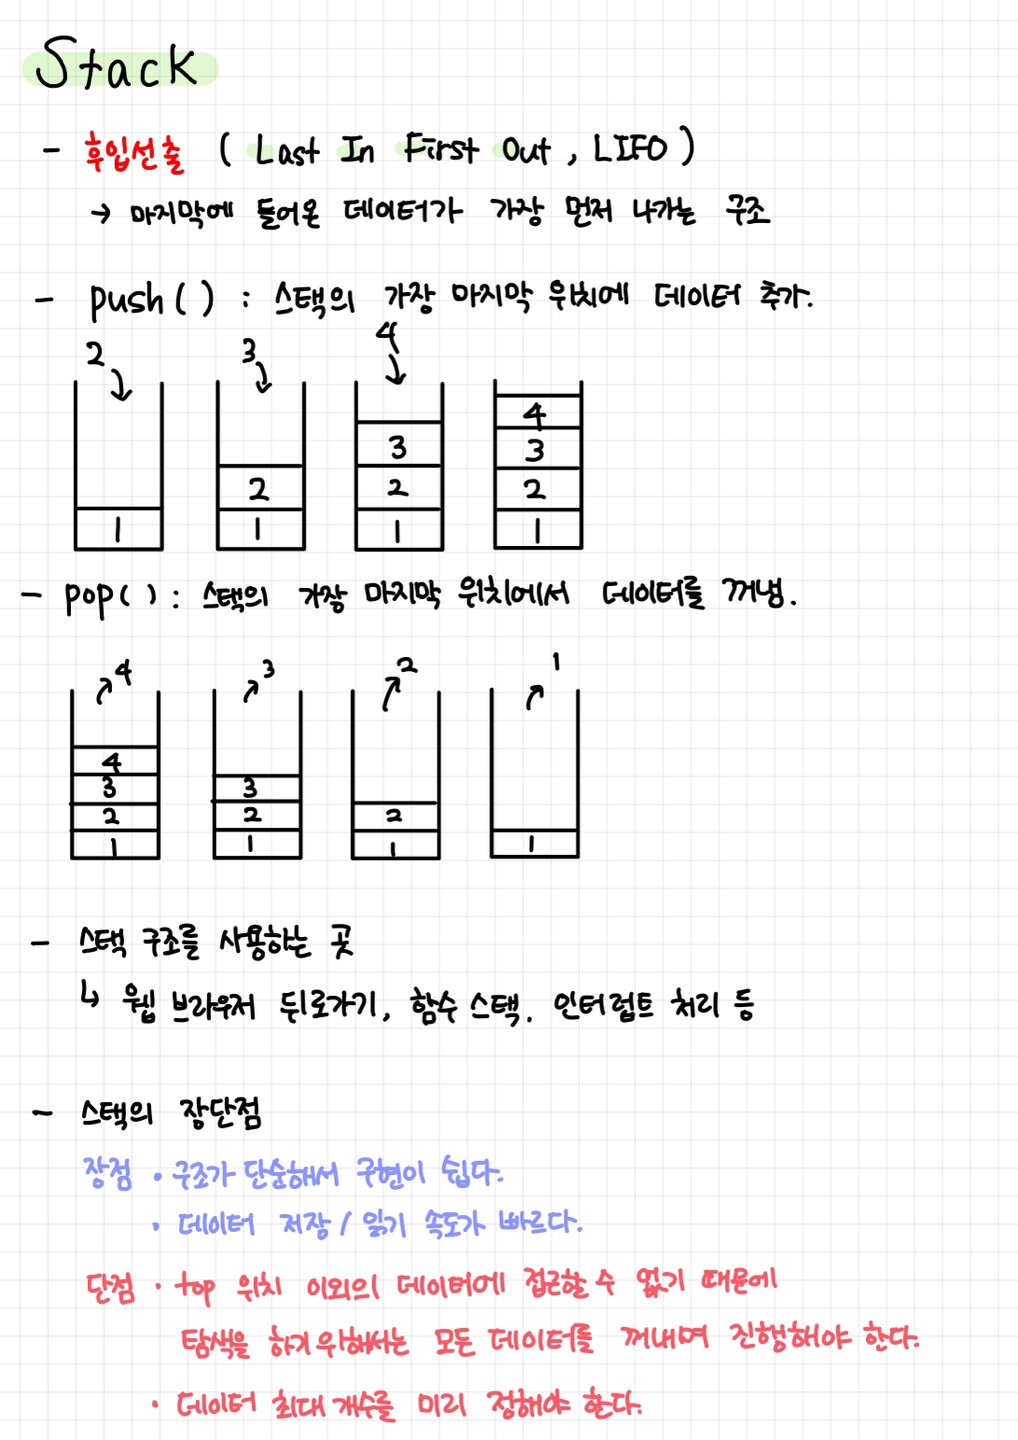 Stack
- 후입선출 ( Last In First Out , LIFO )
→ 마지막에 들어온 데이터가 가장 먼저 나가는 구조
- push ( ) : 스택의 가장 마지막 위치에 데이터 추가.
2 3 4
4
3 3
2 2 2
1 1 1 1
- pop ( ) : 스택의 가장 마지막 위치에서 데이터를 꺼냄.
4 3 2 1
4
3 3
2 2 2
1 1 1 1
- 스택 구조를 사용하는 곳
↳ 웹 브라우저 뒤로가기, 함수 스택. 인터럽트 처리 등
- 스택의 장단점
장점 · 구조가 단순해서 구현이 쉽다.
· 데이터 저장 / 읽기 속도가 빠르다.
단점 · top 위치 이외의 데이터에 접근할 수 없기 때문에
탐색을 하기 위해서는 모든 데이터를 꺼내며 진행해야 한다.
· 데이터 최대 개수를 미리 정해야 한다.